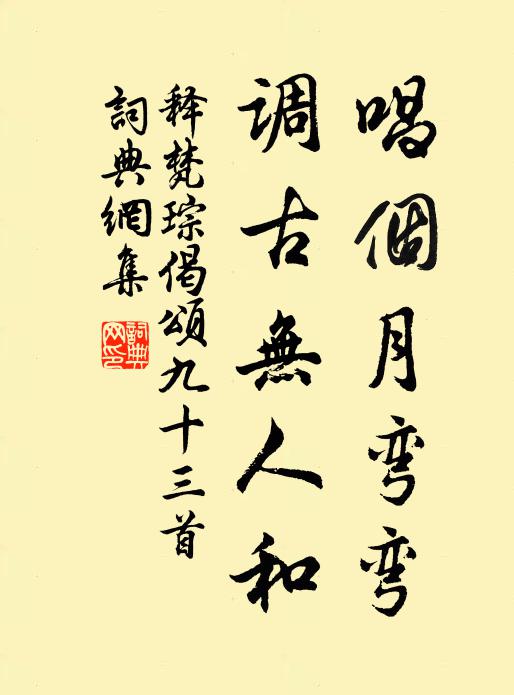 唱個月弯弯
調古無人和
释梵琮偈颂九十三首
詞典網集
詞典网印